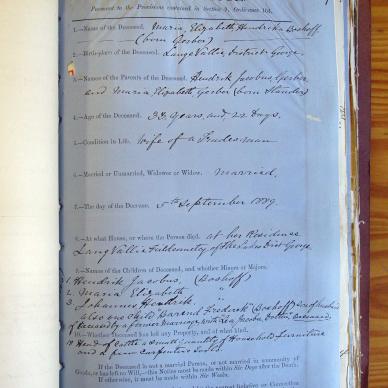 Pursuant to the Provisions contained in Section 9, Ordinance 104.
1.—Name of the Deceased. Maria Elizabeth Hendrika Boshoff
(born Gerber)
2.—Birth-place of the Deceased. Lange Vallei, District George.
3.—Names of the Parents of the Deceased. Hendrik Jacobus Gerber
and Maria Elizabeth Gerber (born Stander)
4.—Age of the Deceased. 33 Years and 22 Days.
5.—Condition in Life. Wife of a Tradesman
6.—Married or Unmarried, Widower or Widow. Married.
7.—The day of the Decease. 5th September 1889.
8.—At what House, or where the Person died. at her Residence
Lang Vallei Fieldcornetcy of the Lakes Dist George.
9.—Names of the Children of Deceased, and whether Minors or Majors.
1. Hendrik Jacobus, (Boshoff)
2. Maria Elizabeth
3. Johannes Hendrik.
also one Child Barend Frederik (Boshoff)
of by a former Marriage, with
10.—Whether Deceased has left any Property, and of what kind.
Head of Cattle a small quantity of Household Furniture
and a few Carpenters Tools.
If the Deceased was not a Married Person, or not married in community of
Goods, or has left no Will,—this Notice must be made within Six Days after the Death.
If otherwise, it must be made within Six Weeks.
the nearest Relation or Connection